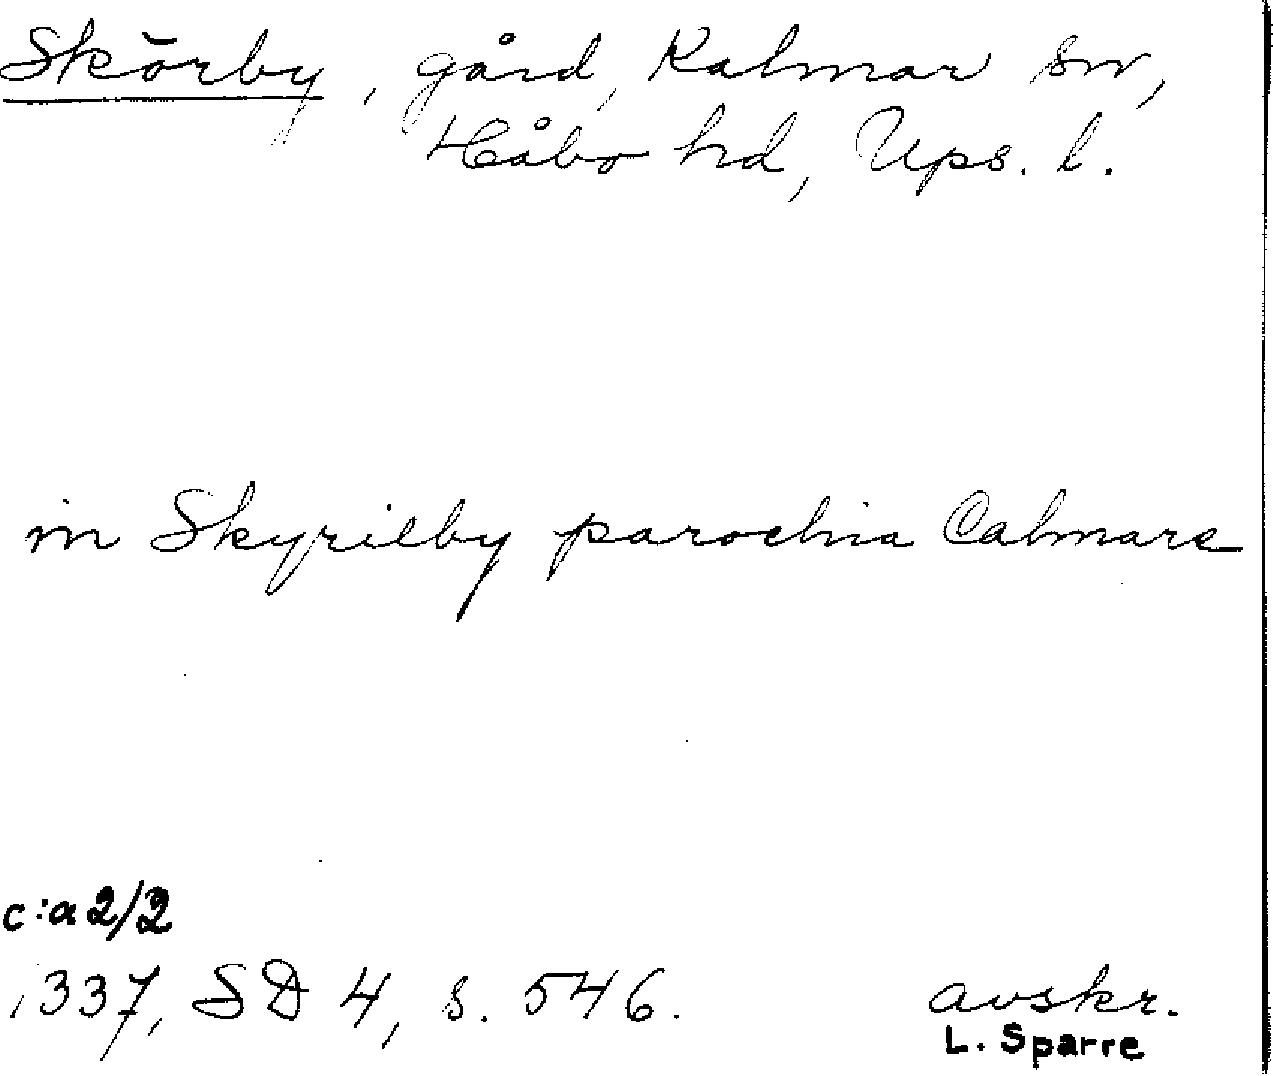 Skörby, gård, Kalmar sn,
Håbo hd, Ups. l.
in Skyrilby parochia Calmare
c:a 2/2
1337, SD 4, s. 546.
avskr.
L. Sparre